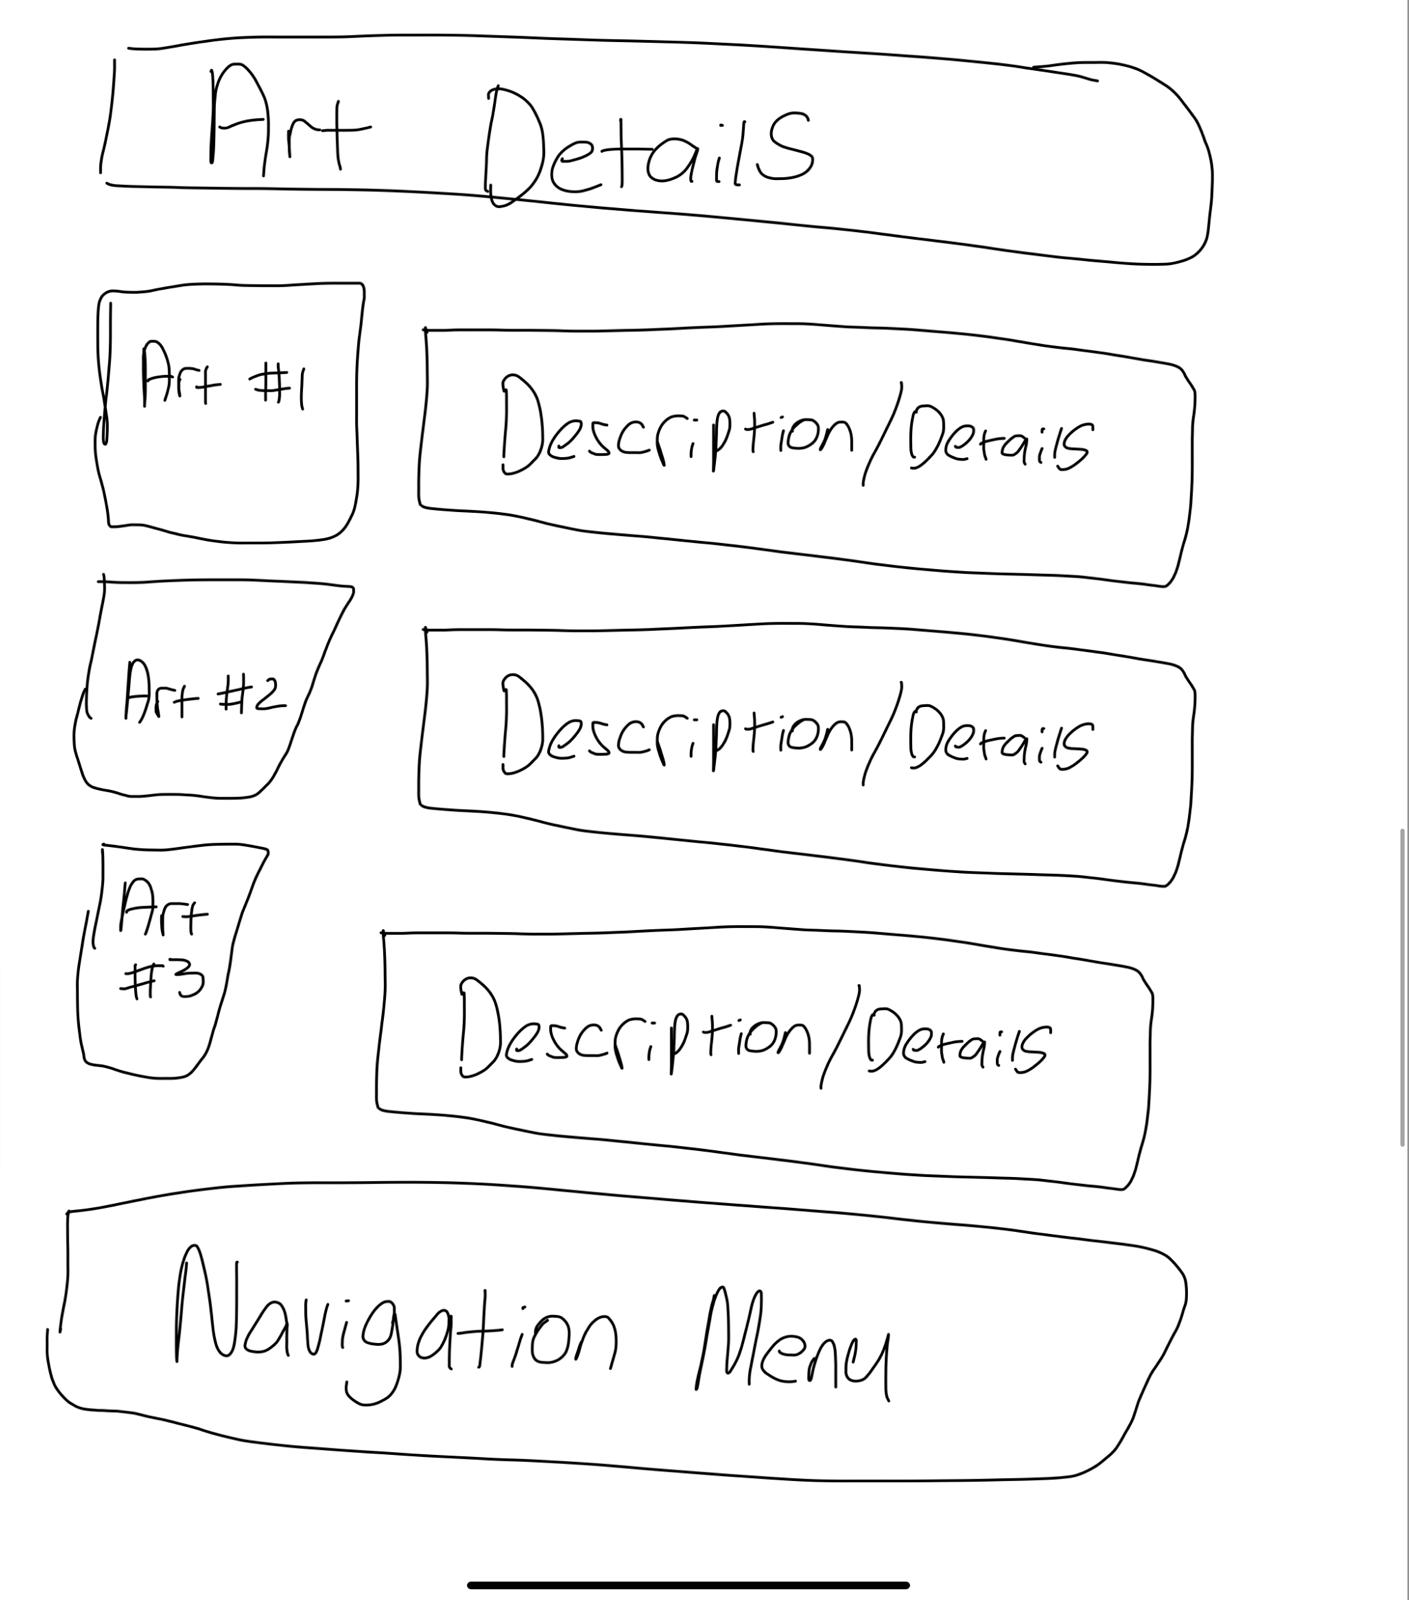 Art Details
Art #1
Description/Details
Art #2
Description/Details
Art
#3
Description/Details
Navigation Menu